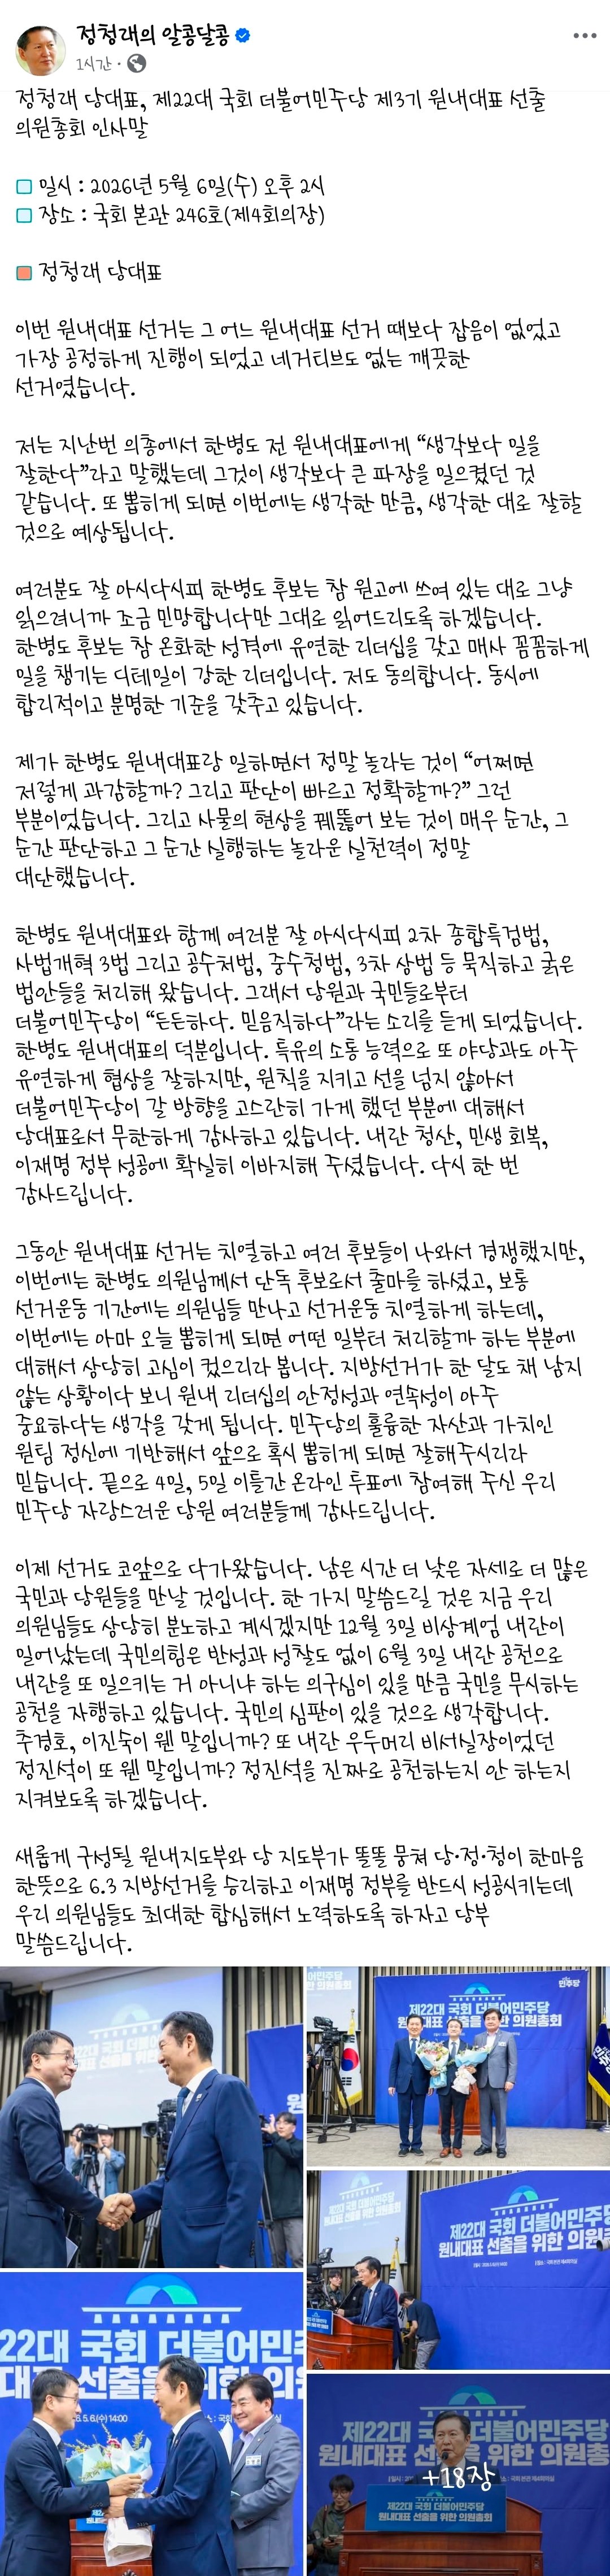 정청래의 알콩달콩
1시간 ·
정청래 당대표, 제22대 국회 더불어민주당 제3기 원내대표 선출
의원총회 인사말
일시 : 2026년 5월 6일(수) 오후 2시
장소 : 국회 본관 246호(제4회의장)
정청래 당대표
이번 원내대표 선거는 그 어느 원내대표 선거 때보다 잡음이 없었고
가장 공정하게 진행이 되었고 네거티브도 없는 깨끗한
선거였습니다.
저는 지난번 의총에서 한병도 전 원내대표에게 “생각보다 일을
잘한다”라고 말했는데 그것이 생각보다 큰 파장을 일으켰던 것
같습니다. 또 뽑히게 되면 이번에는 생각한 만큼, 생각한 대로 잘할
것으로 예상됩니다.
여러분도 잘 아시다시피 한병도 후보는 참 원고에 쓰여 있는 대로 그냥
읽으려니까 조금 민망합니다만 그대로 읽어드리도록 하겠습니다.
한병도 후보는 참 온화한 성격에 유연한 리더십을 갖고 매사 꼼꼼하게
일을 챙기는 디테일이 강한 리더입니다. 저도 동의합니다. 동시에
합리적이고 분명한 기준을 갖추고 있습니다.
제가 한병도 원내대표랑 일하면서 정말 놀라는 것이 “어쩌면
저렇게 과감할까? 그리고 판단이 빠르고 정확할까?” 그런
부분이었습니다. 그리고 사물의 현상을 꿰뚫어 보는 것이 매우 순간, 그
순간 판단하고 그 순간 실행하는 놀라운 실천력이 정말
대단했습니다.
한병도 원내대표와 함께 여러분 잘 아시다시피 2차 종합특검법,
사법개혁 3법 그리고 공수처법, 중수청법, 3차 상법 등 묵직하고 굵은
법안들을 처리해 왔습니다. 그래서 당원과 국민들로부터
더불어민주당이 “든든하다. 믿음직하다”라는 소리를 듣게 되었습니다.
한병도 원내대표의 덕분입니다. 특유의 소통 능력으로 또 야당과도 아주
유연하게 협상을 잘하지만, 원칙을 지키고 선을 넘지 않아서
더불어민주당이 갈 방향을 고스란히 가게 했던 부분에 대해서
당대표로서 무한하게 감사하고 있습니다. 내란 청산, 민생 회복,
이재명 정부 성공에 확실히 이바지해 주셨습니다. 다시 한 번
감사드립니다.
그동안 원내대표 선거는 치열하고 여러 후보들이 나와서 경쟁했지만,
이번에는 한병도 의원님께서 단독 후보로서 출마를 하셨고, 보통
선거운동 기간에는 의원님들 만나고 선거운동 치열하게 하는데,
이번에는 아마 오늘 뽑히게 되면 어떤 일부터 처리할까 하는 부분에
대해서 상당히 고심이 컸으리라 봅니다. 지방선거가 한 달도 채 남지
않는 상황이다 보니 원내 리더십의 안정성과 연속성이 아주
중요하다는 생각을 갖게 됩니다. 민주당의 훌륭한 자산과 가치인
원팀 정신에 기반해서 앞으로 혹시 뽑히게 되면 잘해주시리라
믿습니다. 끝으로 4일, 5일 이틀간 온라인 투표에 참여해 주신 우리
민주당 자랑스러운 당원 여러분들께 감사드립니다.
이제 선거도 코앞으로 다가왔습니다. 남은 시간 더 낮은 자세로 더 많은
국민과 당원들을 만날 것입니다. 한 가지 말씀드릴 것은 지금 우리
의원님들도 상당히 분노하고 계시겠지만 12월 3일 비상계엄 내란이
일어났는데 국민의힘은 반성과 성찰도 없이 6월 3일 내란 공천으로
내란을 또 일으키는 거 아니냐 하는 의구심이 있을 만큼 국민을 무시하는
공천을 자행하고 있습니다. 국민의 심판이 있을 것으로 생각합니다.
추경호, 이진숙이 웬 말입니까? 또 내란 우두머리 비서실장이었던
정진석이 또 웬 말입니까? 정진석을 진짜로 공천하는지 안 하는지
지켜보도록 하겠습니다.
새롭게 구성될 원내지도부와 당 지도부가 똘똘 뭉쳐 당·정·청이 한마음
한뜻으로 6.3 지방선거를 승리하고 이재명 정부를 반드시 성공시키는데
우리 의원님들도 최대한 합심해서 노력하도록 하자고 당부
말씀드립니다.
민주당
제22대 국회 더불어민주당
원내대표 선출을 위한 의원총회
제22대 국회 더불어민주당
원내대표 선출을 위한 의원총회
제22대 국회 더불어민주
원내대표 선출을 위한 의원
22대 국회 더불어민
대표 선출을 위한
6.5.6(수) 14:00
제22대 국회 더불어민주당
원내대표 선출을 위한 의원총
+18장
제22대 국회 더불어민주당
원내대표 선출을 위한 의원총회